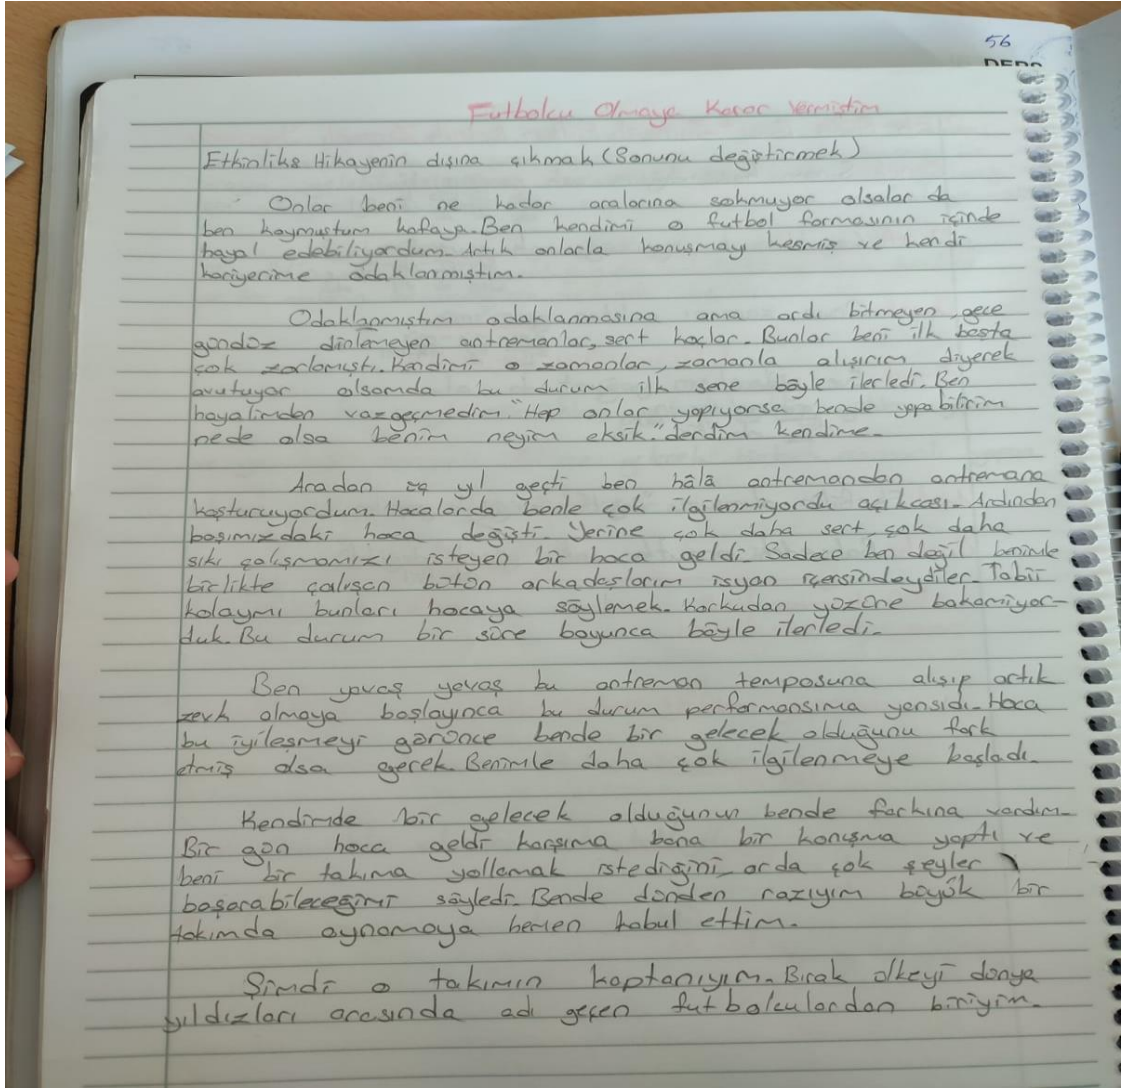 56
DERS
Futbolcu Olmaya Karar Vermiştim
Etkinlik: Hikayenin dışına çıkmak (Sonunu değiştirmek)
Onlar beni ne kadar aralarına sokmuyor olsalar da
ben koymuştum kafaya. Ben kendimi o futbol formasının içinde
hayal edebiliyordum. Artık onlarla konuşmayı kesmiş ve kendi
kariyerime odaklanmıştım.
Odaklanmıştım odaklanmasına ama ardı bitmeyen, gece
gündüz dinlemeyen antremanlar, sert koçlar. Bunlar beni ilk başta
çok zorlamıştı. Kendimi o zamanlar, zamanla alışırım diyerek
avutuyor olsamda bu durum ilk sene böyle ilerledi. Ben
hayalimden vazgeçmedim. "Hep onlar yapıyorsa bende yapabilirim
nede olsa benim neyim eksik." derdim kendime.
Aradan üç yıl geçti ben hâlâ antremandan antremana
koşturuyordum. Hocalarda benle çok ilgilenmiyordu açıkcası. Ardından
başımızdaki hoca değişti. Yerine çok daha sert, çok daha
sıkı çalışmamızı isteyen bir hoca geldi. Sadece ben değil benimle
birlikte çalışan bütün arkadaşlarım isyan içersindeydiler. Tabii
kolaymı bunları hocaya söylemek. Korkudan yüzüne bakamıyor-
duk. Bu durum bir süre boyunca böyle ilerledi.
Ben yavaş yavaş bu antreman temposuna alışıp artık
zevk almaya başlayınca bu durum performansıma yansıdı. Hoca
bu iyileşmeyi görünce bende bir gelecek olduğunu fark
etmiş olsa gerek. Benimle daha çok ilgilenmeye başladı.
Kendimde bir gelecek olduğunun bende farkına vardım.
Bir gün hoca geldi karşıma bana bir konuşma yaptı ve
beni bir takıma yollamak istediğini, orda çok şeyler
başarabileceğimi söyledi. Bende dünden razıyım büyük bir
takımda oynamaya hemen kabul ettim.
Şimdi o takımın kaptanıyım. Bırak ülkeyi dünya
yıldızları arasında adı geçen futbolculardan biriyim.